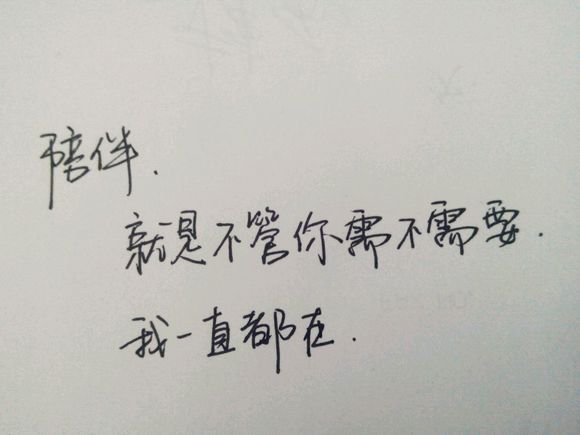 陪伴.
就是不管你需不需要.
我一直都在.